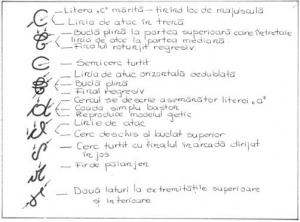 Litera „C" mărită – tinînd loc de majusculă
Linia de atac în trenă
Buclă plină la partea superioară care întretaie
linia de atac la partea mediană
Finalul rotunjit regresiv
Semicerc turtit
Linia de atac orizontală dedublată
Buclă plină
Final regresiv
Cercul se descrie asemănător literei „a"
Coada simplu baston
Reproduce modelul getic
Linie de atac
Cerc deschis și buclat superior
Cerc turtit cu finalul în arcadă dirijat
în jos
Fir de păianjen
Două laturi la extremitățile superioare
și inferioare